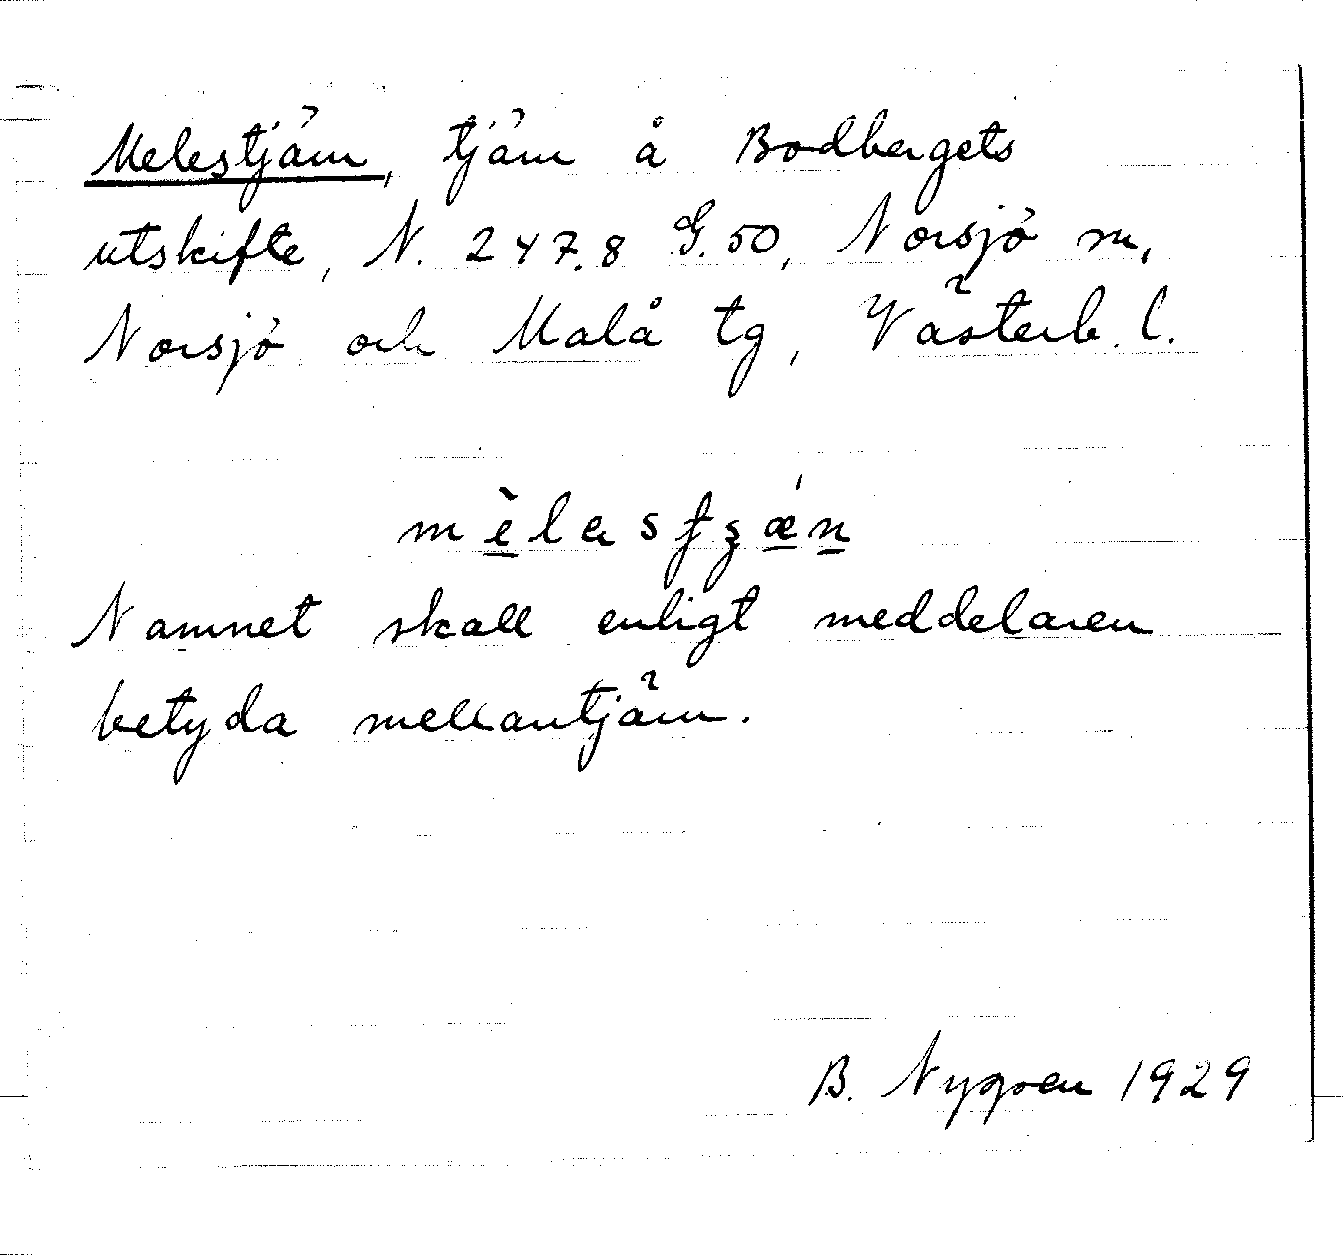 Melestjärn, tjärn å Bodbergets
utskifte, N. 247.8 G. 50, Norsjö sn,
Norsjö och Malå tg, Västerb. l.
Namnet skall enligt meddelaren
betyda mellantjärn.
B. Nygren 1929